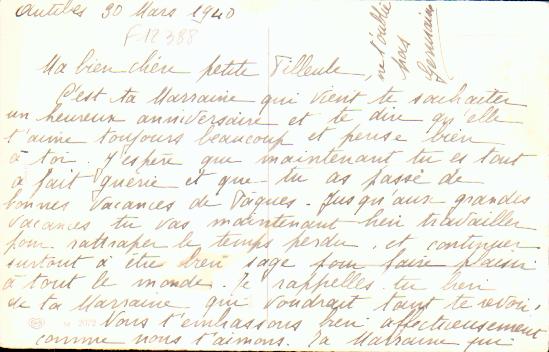 Antibes 30 Mars 1940
F12388
ne t'oublie
pas
Germaine
Ma bien chère petite Filleule,
C'est ta Marraine qui vient te souhaiter
un heureux anniversaire et te dire qu'elle
t'aime toujours beaucoup et pense bien
à toi. J'espère que maintenant tu es tout
à fait guérie et que tu as passé de
bonnes vacances de Pâques. Jusqu'aux grandes
vacances tu vas maintenant bien travailler
pour rattraper le temps perdu, et continuer
surtout à être bien sage pour faire plaisir
à tout le monde. Te rappelles tu bien
de ta Marraine qui voudrait tant te revoir,
Nous t'embrassons bien affectueusement
comme nous t'aimons. Ta Marraine qui